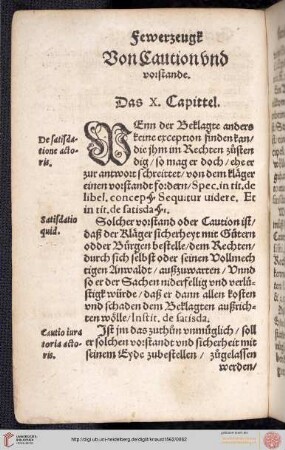 Fewerzeugk
Von Caution vnd
vorstande.
Das X. Capittel.
De satisda-
tione acto-
ris.
WEnn der Beklagte anders
keine exception finden kan/
die jhm im Rechten züsten
dig/ so mag er doch/ ehe er
zur antwort schreittet/ von dem kläger
einen vorstandt fordern/ Spec. in tit. de
libel. concep. Sequitur uidere. Et
in tit. de satisda.
Satisdatio
quid.
Solcher vorstand oder Caution ist/
daß der Kläger sicherheyt mit Gütern
odder Bürgen bestelle/ dem Rechten/
durch sich selbst oder seinen Vollmech
tigen Anwaldt/ außzuwarten/ Vnnd
so er der Sachen niderfellig vnd verlü-
stigk würde/ daß er dann allen kosten
vnd schaden dem Beklagten außrich-
ten wölle/ Instit. de satisda.
Cautio iura
toria acto-
ris.
Ist jm das zuthün vnmüglich/ soll
er solchen vorstandt vnd sicherheit mit
seinem Eyde zubestellen/ zügelassen
werden/
http://digi.ub.uni-heidelberg.de/diglit/knaust1562/0062